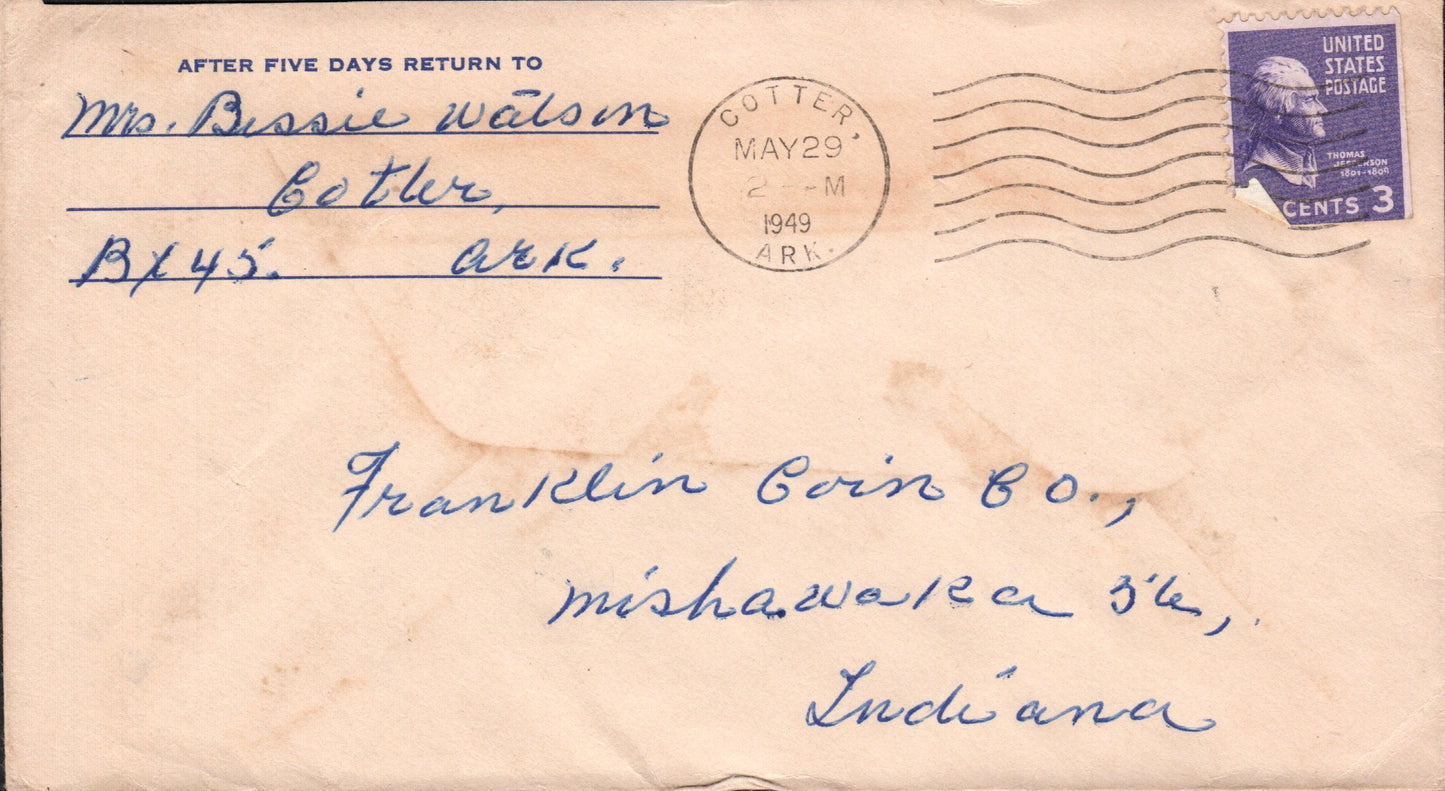 AFTER FIVE DAYS RETURN TO
Mrs. Bessie Watson
Cotter,
Bx 45. Ark.
COTTER,
MAY 29
2 M
1949
ARK.
UNITED
STATES
POSTAGE
THOMAS
JEFFERSON
1801-1809
CENTS 3
Franklin Coin Co.,
Mishawaka
Indiana